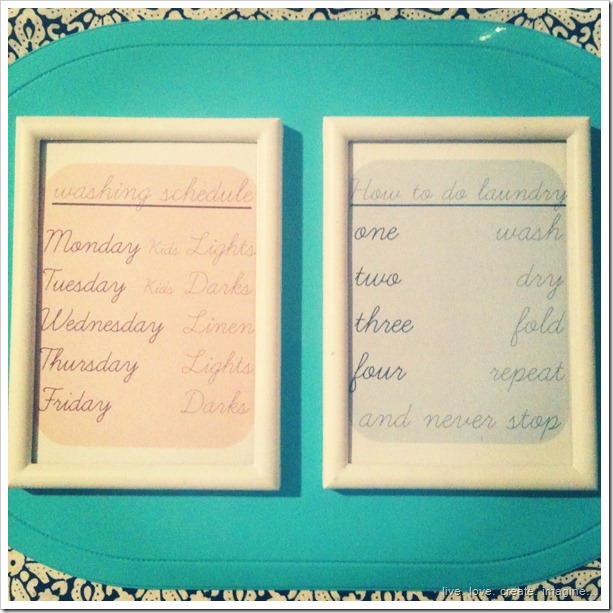 washing schedule
Monday Kid's Lights
Tuesday Kid's Darks
Wednesday Linen
Thursday Lights
Friday Darks
How to do laundry
one wash
two dry
three fold
four repeat
and never stop
live. love. create. imagine...